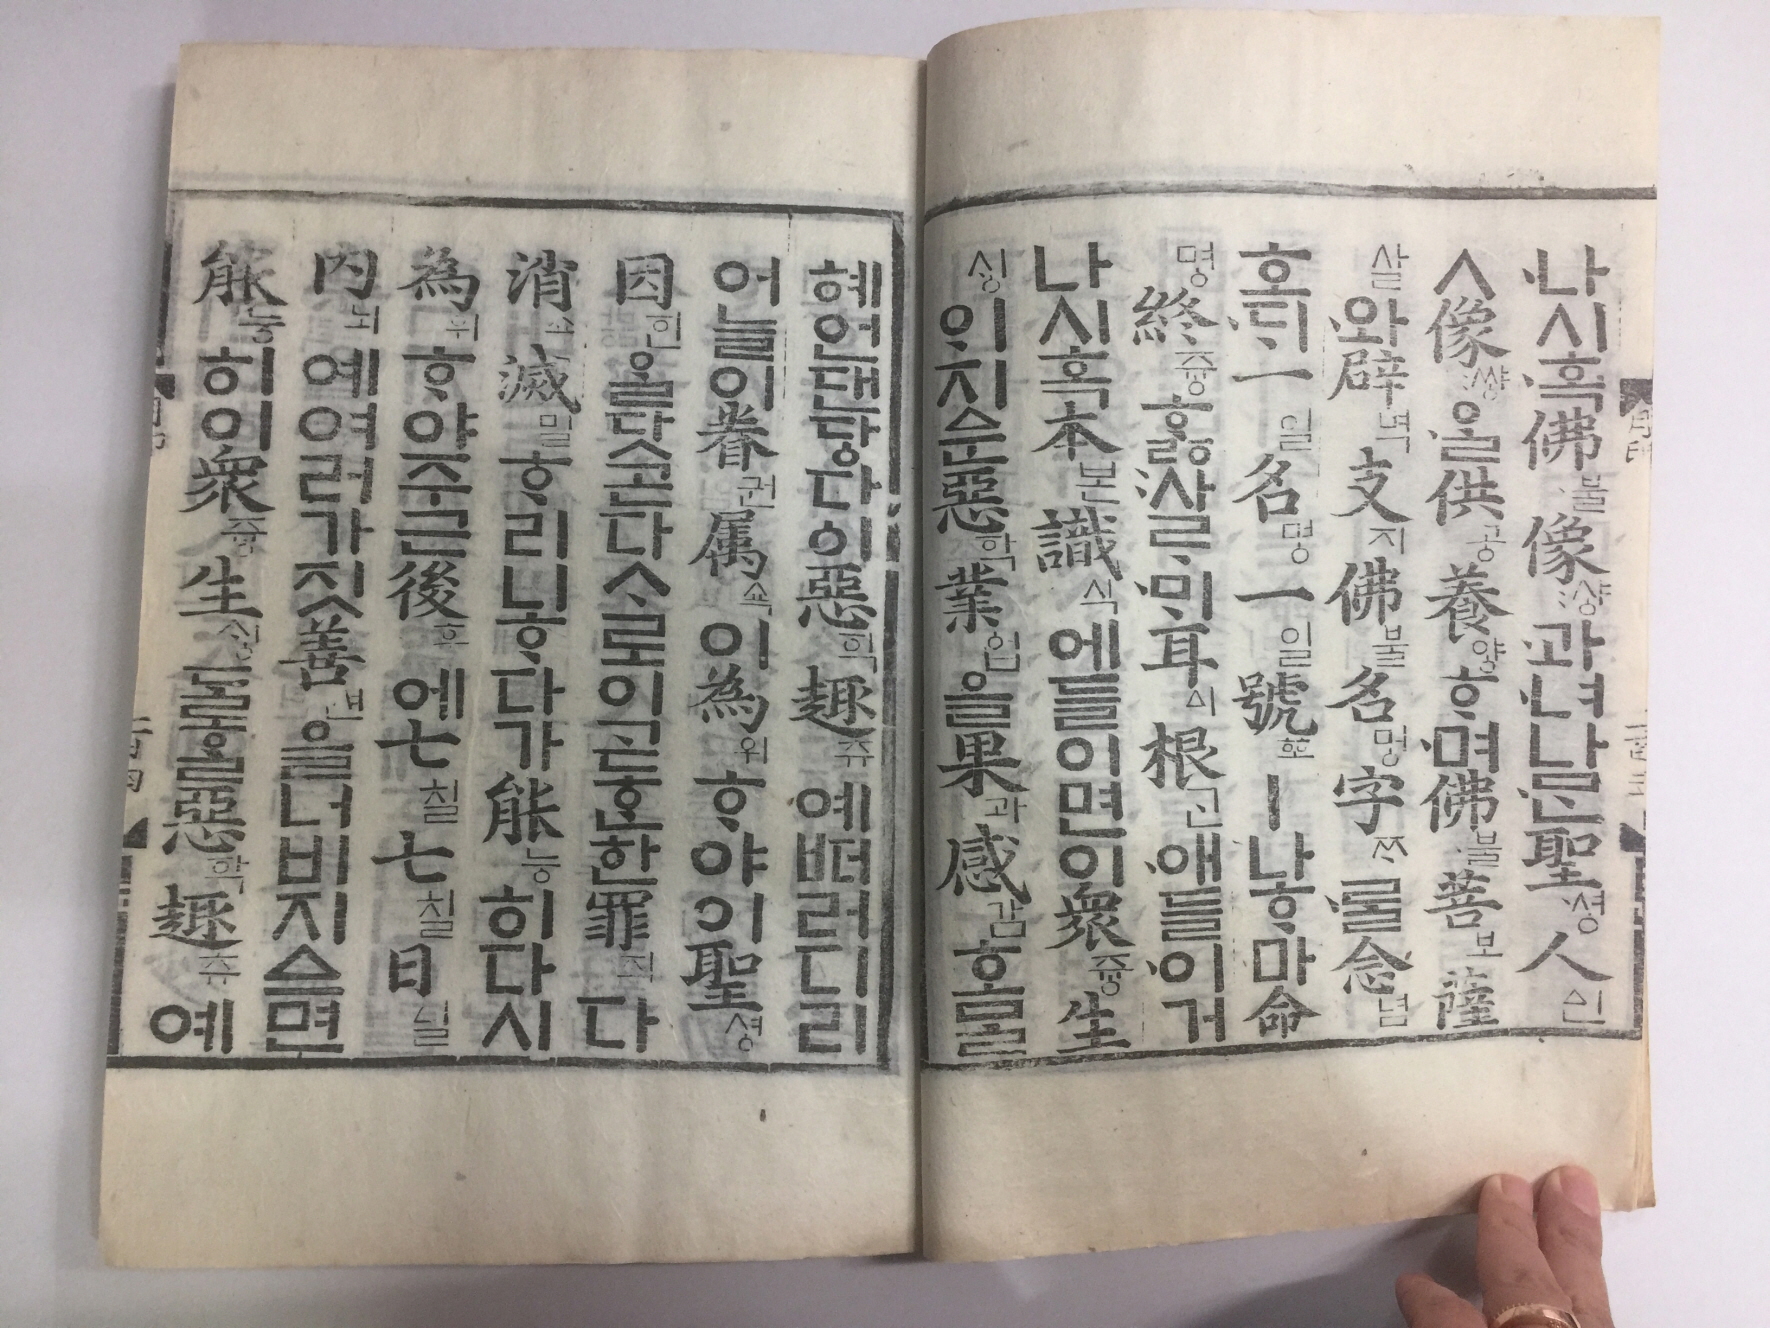 나시혹佛불像썅과녀나ᄆᆞᆫ聖셩人ᅀᅵᆫ
ㅅ像썅ᄋᆞᆯ供공養양ᄒᆞ며佛불菩보薩
살와辟벽支지佛불名명字ᄍᆞᄅᆞᆯ念념
호ᄃᆡ一일名명一일號호ㅣ나ᄒᆞ마命
명終즁ᄒᆞᇙ사ᄅᆞ미耳ᅀᅵ根근애들이거
나시혹本본識식에들이면이衆즁生
싱ᄋᆡ지ᅀᅩᆫ惡학業업을果과感감호ᄆᆞᆯ
혜언댄당다ᅌᅵ惡학趣츄예ᄠᅥ러디리
어늘이眷권属쇽이為위ᄒᆞ야이聖셩
因인ᄋᆞᆯ닷ᄀᆞᆫ다ᄉᆞ로이ᄀᆞᆮᄒᆞᆫ한罪죄다
消쇼滅멸ᄒᆞ리니ᄒᆞ다가能능히다시
為위ᄒᆞ야주근後후에七칠七칠日ᅀᅵᆯ
內ᄂᆡ예여러가짓善션을너비지ᅀᅳ면
能능히이衆즁生싱ᄃᆞᆯᄒᆞᆯ惡학趣츄예